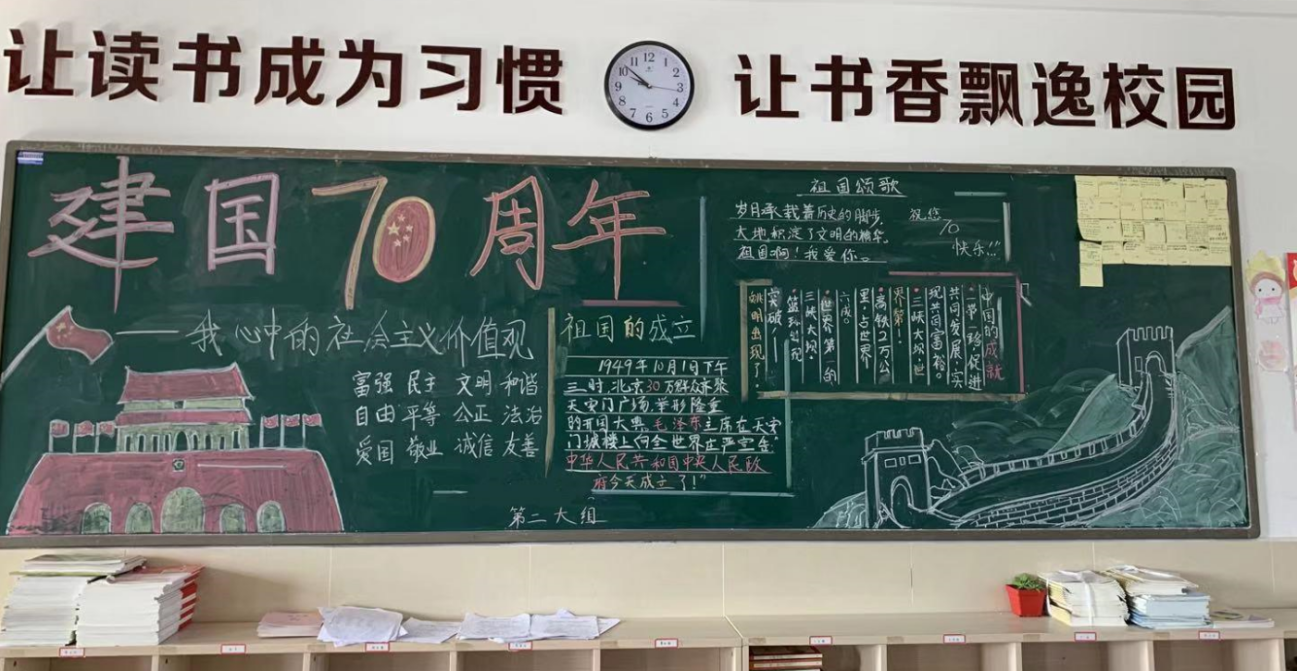 让读书成为习惯
让书香飘逸校园
12
1
2
3
4
5
6
7
8
9
10
11
建国70周年
——我心中的社会主义价值观
富强 民主 文明 和谐
自由 平等 公正 法治
爱国 敬业 诚信 友善
祖国的成立
1949年10月1日下午
三时,北京30万群众齐聚
天安门广场,举行隆重
的开国大典,毛泽东主席在天安
门城楼上向全世界庄严宣告"
中华人民共和国中央人民政
府今天成立了!"
第二大组
祖国颂歌
岁月承载着历史的脚步,
大地积淀了文明的精华,
祖国啊!我爱你。
祝您
70
快乐!!!
中国的成就
·一带一路,促进
共同发展,实
现共同富裕。
·三峡大坝,世
界第一。
·高铁2万公
里,占世界
六成。
·世界第一的
三峡大坝。
·篮球实现
突破——
姚明出现了!